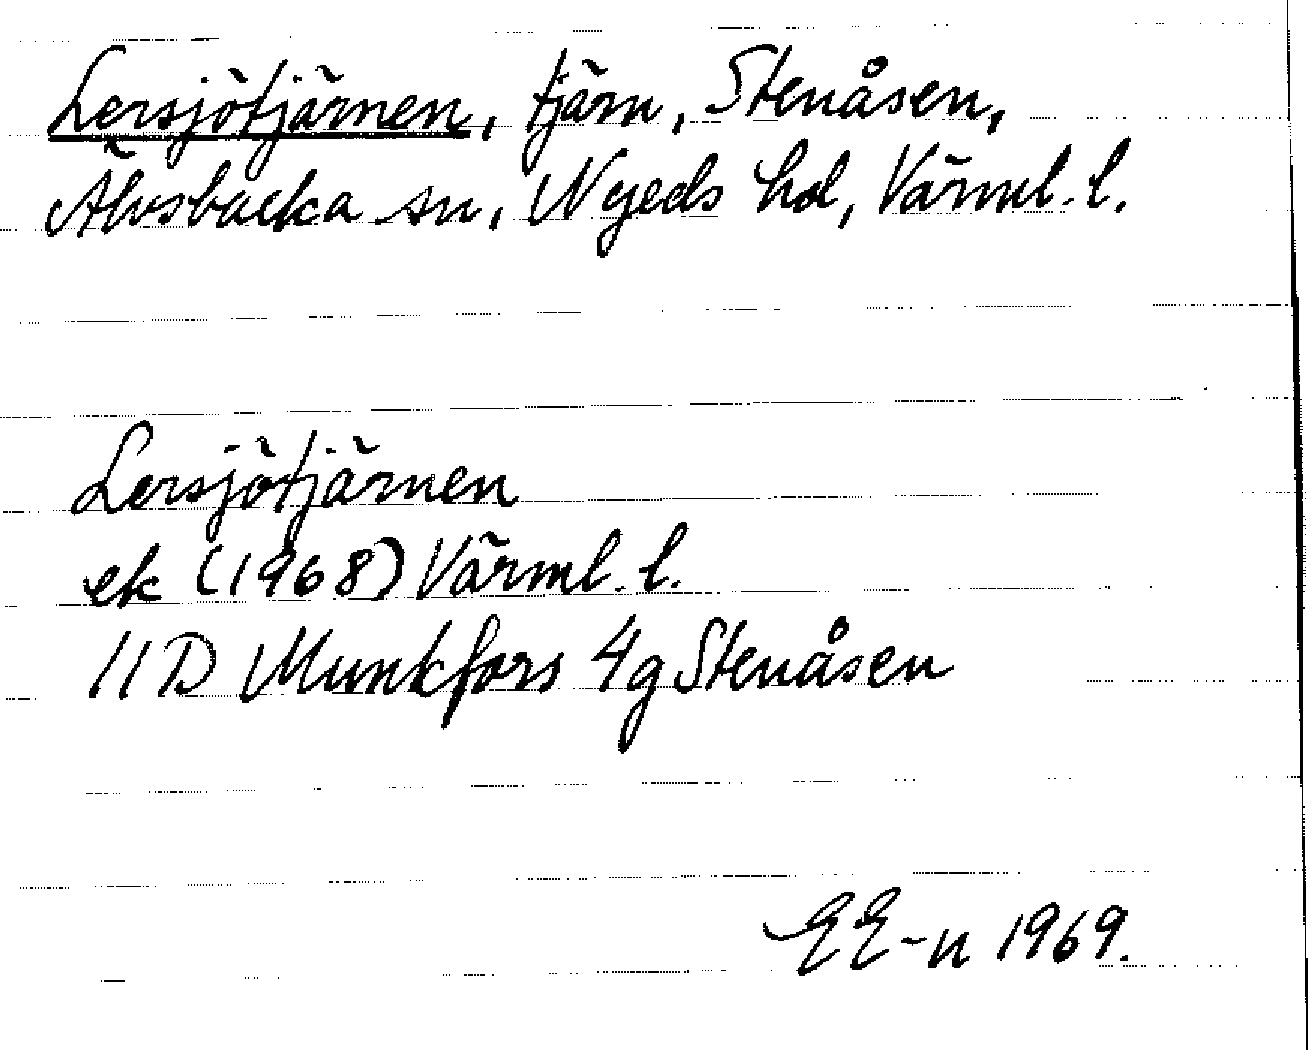 Lersjötjärnen, tjärn, Stenåsen,
Älvsbacka sn, Nyeds hd, Värml. l.
Lersjötjärnen
ek (1968) Värml. l.
11D Munkfors 4g Stenåsen
EE-n 1969.